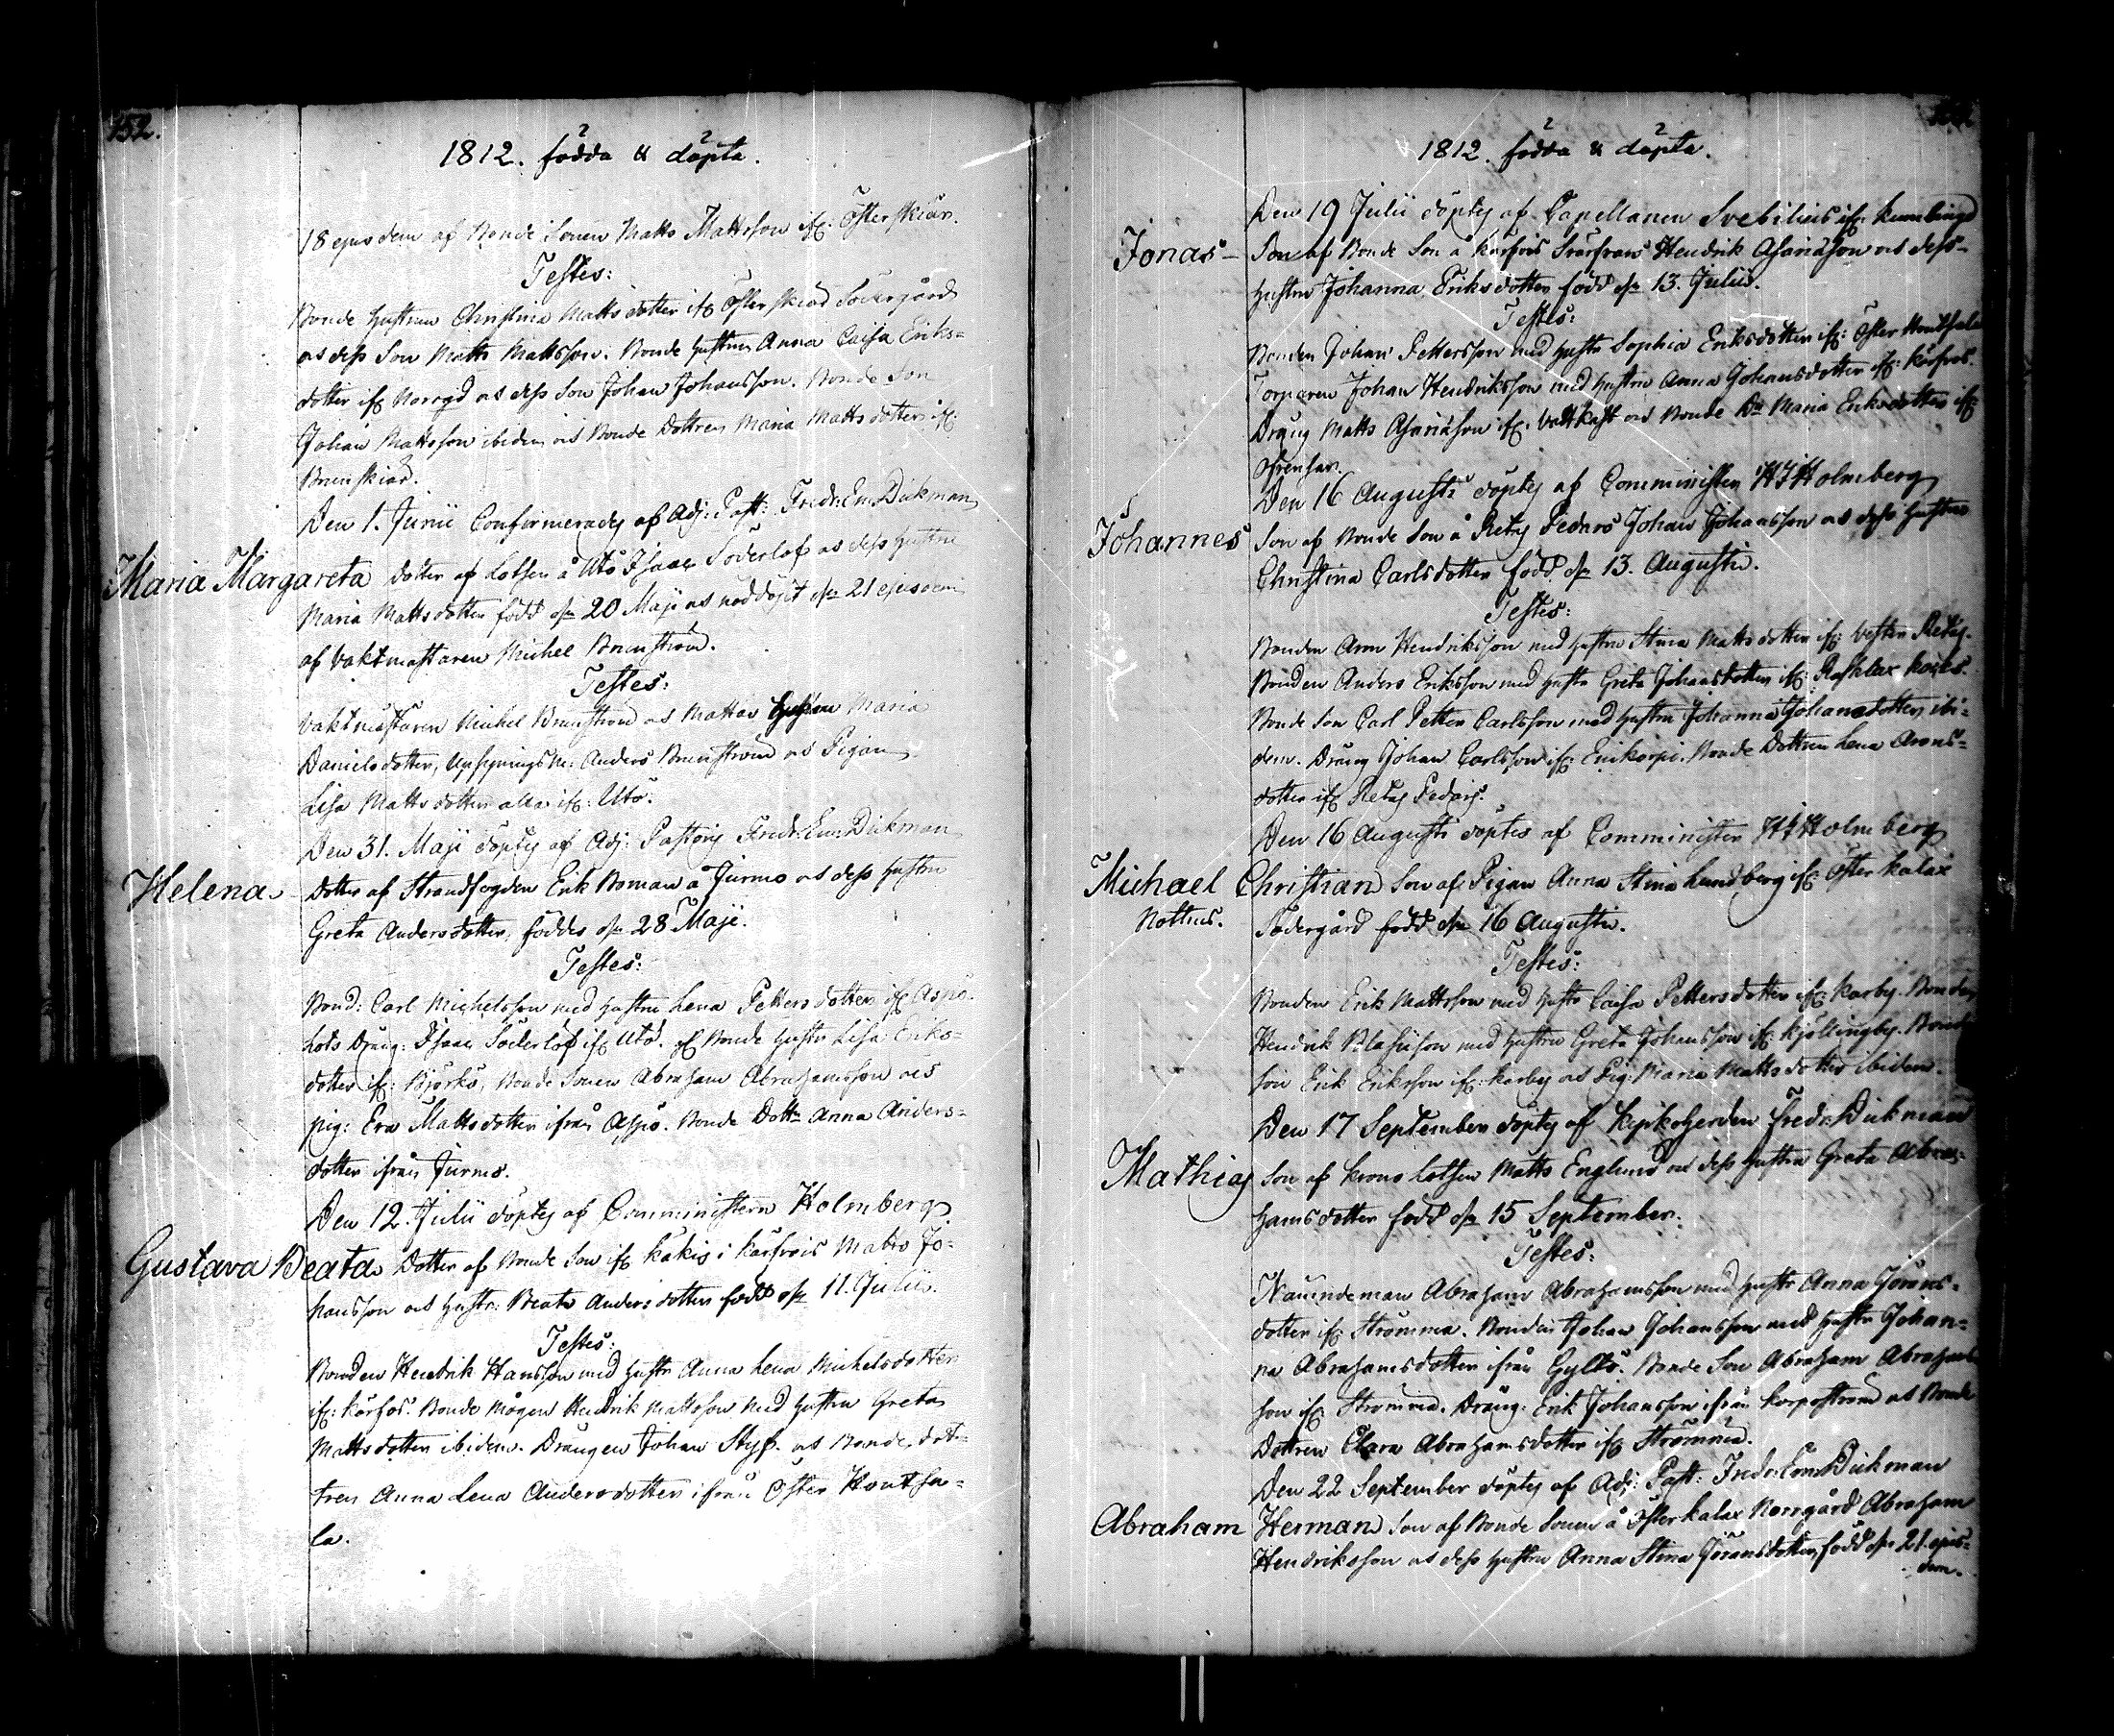 152.
1812. födda & döpta.
18 ejusdem af Bonde Sonen Matts Mattsson ifr: Österskiär.
Testes:
Bonde hustrun Christina Mattsdotter ifr Österskiär Södergård
as dess Son Matts Mattsson. Bonde hustrun Anna Caisa Eriks=
dotter ifr Norrgd as dess Son Johan Johansson. Bonde Son
Johan Mattsson ibidem as Bonde Dottren Maria Mattsdotter ifr:
Brunskiär.
Den 1. Junii Confirmerades af Adj: Past: Fredr: Em: Dickman
Maria Margareta dotter af Lotsen å Utö Isaac Söderlöf as dess hustru
Maria Mattsdotter född dn 20 Maji as nöddöpt dn 21 ejusdem
af Vaktmästaren Michel Brunström.
Testes:
Vaktmästaren Michel Brunström as Mattas hustru Maria
Danielsdotter, Anders Brunström as Pigan
Lisa Mattsdotter alla ifr: Utö.
Den 31. Maji döptes af Adj: Pastoris Fredr: Em: Dickman
Helena dotter af Strandfogden Erik Boman å Jurmo as dess hustru
Greta Andersdotter, föddes dn 28 Maji.
Testes:
Bond: Carl Michelsson med hustru Lena Pettersdotter ifr Aspö.
Lots Dräng: Isaac Söderlöf ifr Utö. Bonde hustr Lisa Eriks=
dotter ifr: Björkö, Bonde Sonen Abraham Abrahamsson as
pig: Eva Mattsdotter ifrån Aspö. Bonde Dottr Anna Anders=
dotter ifrån Jurmo.
Den 12. Julii döptes af Comministern Holmberg
Gustava Beata Dotter af Bonde Son ifr Käkis i Kärfvois Matts Jo=
hansson as hustr: Beata Andersdotter född dn 11. Julii.
Testes:
Bonden Hendrik Hansson med hustr Anna Lena Michelsdotter
ifr: Körfos. Bonde Mågen Hendrik Mattsson med hustru Greta
Mattsdotter ibidem. Drängen Johan Styf as Bonde dot=
tren Anna Lena Andersdotter ifrån Öster Hontsa=
la.
1812. födda & döpta.
Den 19 Julii döptes af Capellanen Svebilius ifr: Kumlinge
Jonas Son af Bonde Son å Kärfvois Hendrik Asariasson as dess
hustru Johanna Eriksdotter född dn 13. Julii.
Testes:
Bonden Johan Pettersson med hustr Sophia Eriksdotter ifr: Öster Hontsala
Torparen Johan Hendriksson med hustru Anna Johansdotter ifr: Körfvos.
Dräng Matts Asariasson ifr: Vattkast as Bonde Dn Maria Eriksdotter ifr:
Den 16 Augusti döptes af Comministern HJHolmberg
Johannes Son af Bonde Son å Retais Pedars Johan Johansson as dess hustru
Christina Carlsdotter född dn 13. Augusti.
Testes:
Bonden Aron Hendriksson med hustru Stina Mattsdotter ifr: Vester Retais.
Bonden Anders Eriksson med hustr Greta Johansdotter ifr: Rosklax
Bonde Son Carl Petter Carlsson med hustru Johanna Johansdotter ibi=
dem. Dräng Johan Carlsson ifr: Enikorpi. Bonde Dottren Lena Arons=
dotter ifr Retais Pedars.
Den 16 Augusti döptes af Comministern HJHolmberg
Michael Christian Son af Pigan Anna Stina Lundberg ifr Österkalax
Nothus. Södergård född dn 16 Augusti.
Testes:
Bonden Erik Mattsson med hustr Caisa Pettersdotter ifr: Karby. Bonden
Hendrik Blasisson med hustru Greta Johansson ifr: Kjöllingby. Bonde
son Erik Eriksson ifr: Karby as Pig: Maria Mattsdotter ibidem.
Den 17 September döptes af Kyrkoherden Fredr: Dickman
Mathias Son af Krono Lotsen Matts Englund as dess hustru Greta Abra=
hamsdotter född dn 15 September.
Testes:
Nämndeman Abraham Abrahamsson med hustr Anna Jörans=
dotter ifr Strömma. Bonden Johan Johansson med hustr Johan=
na Abrahamsdotter ifrån Gyltö. Bonde Son Abraham Abrahams
son ifr Strömma. Dräng: Erik Johansson ifrån Korpoström as Bonde
Dottren Clara Abrahamsdotter ifr Strömma.
Den 22 September döptes af Adj: Past: Fredr: Em: Dickman
Abraham Herman Son af Bonde Sonen å Österkalax Norrgård Abraham
Hendriksson as dess hustru Anna Stina Jöransdotter, född dn 21. ejus=
dem.